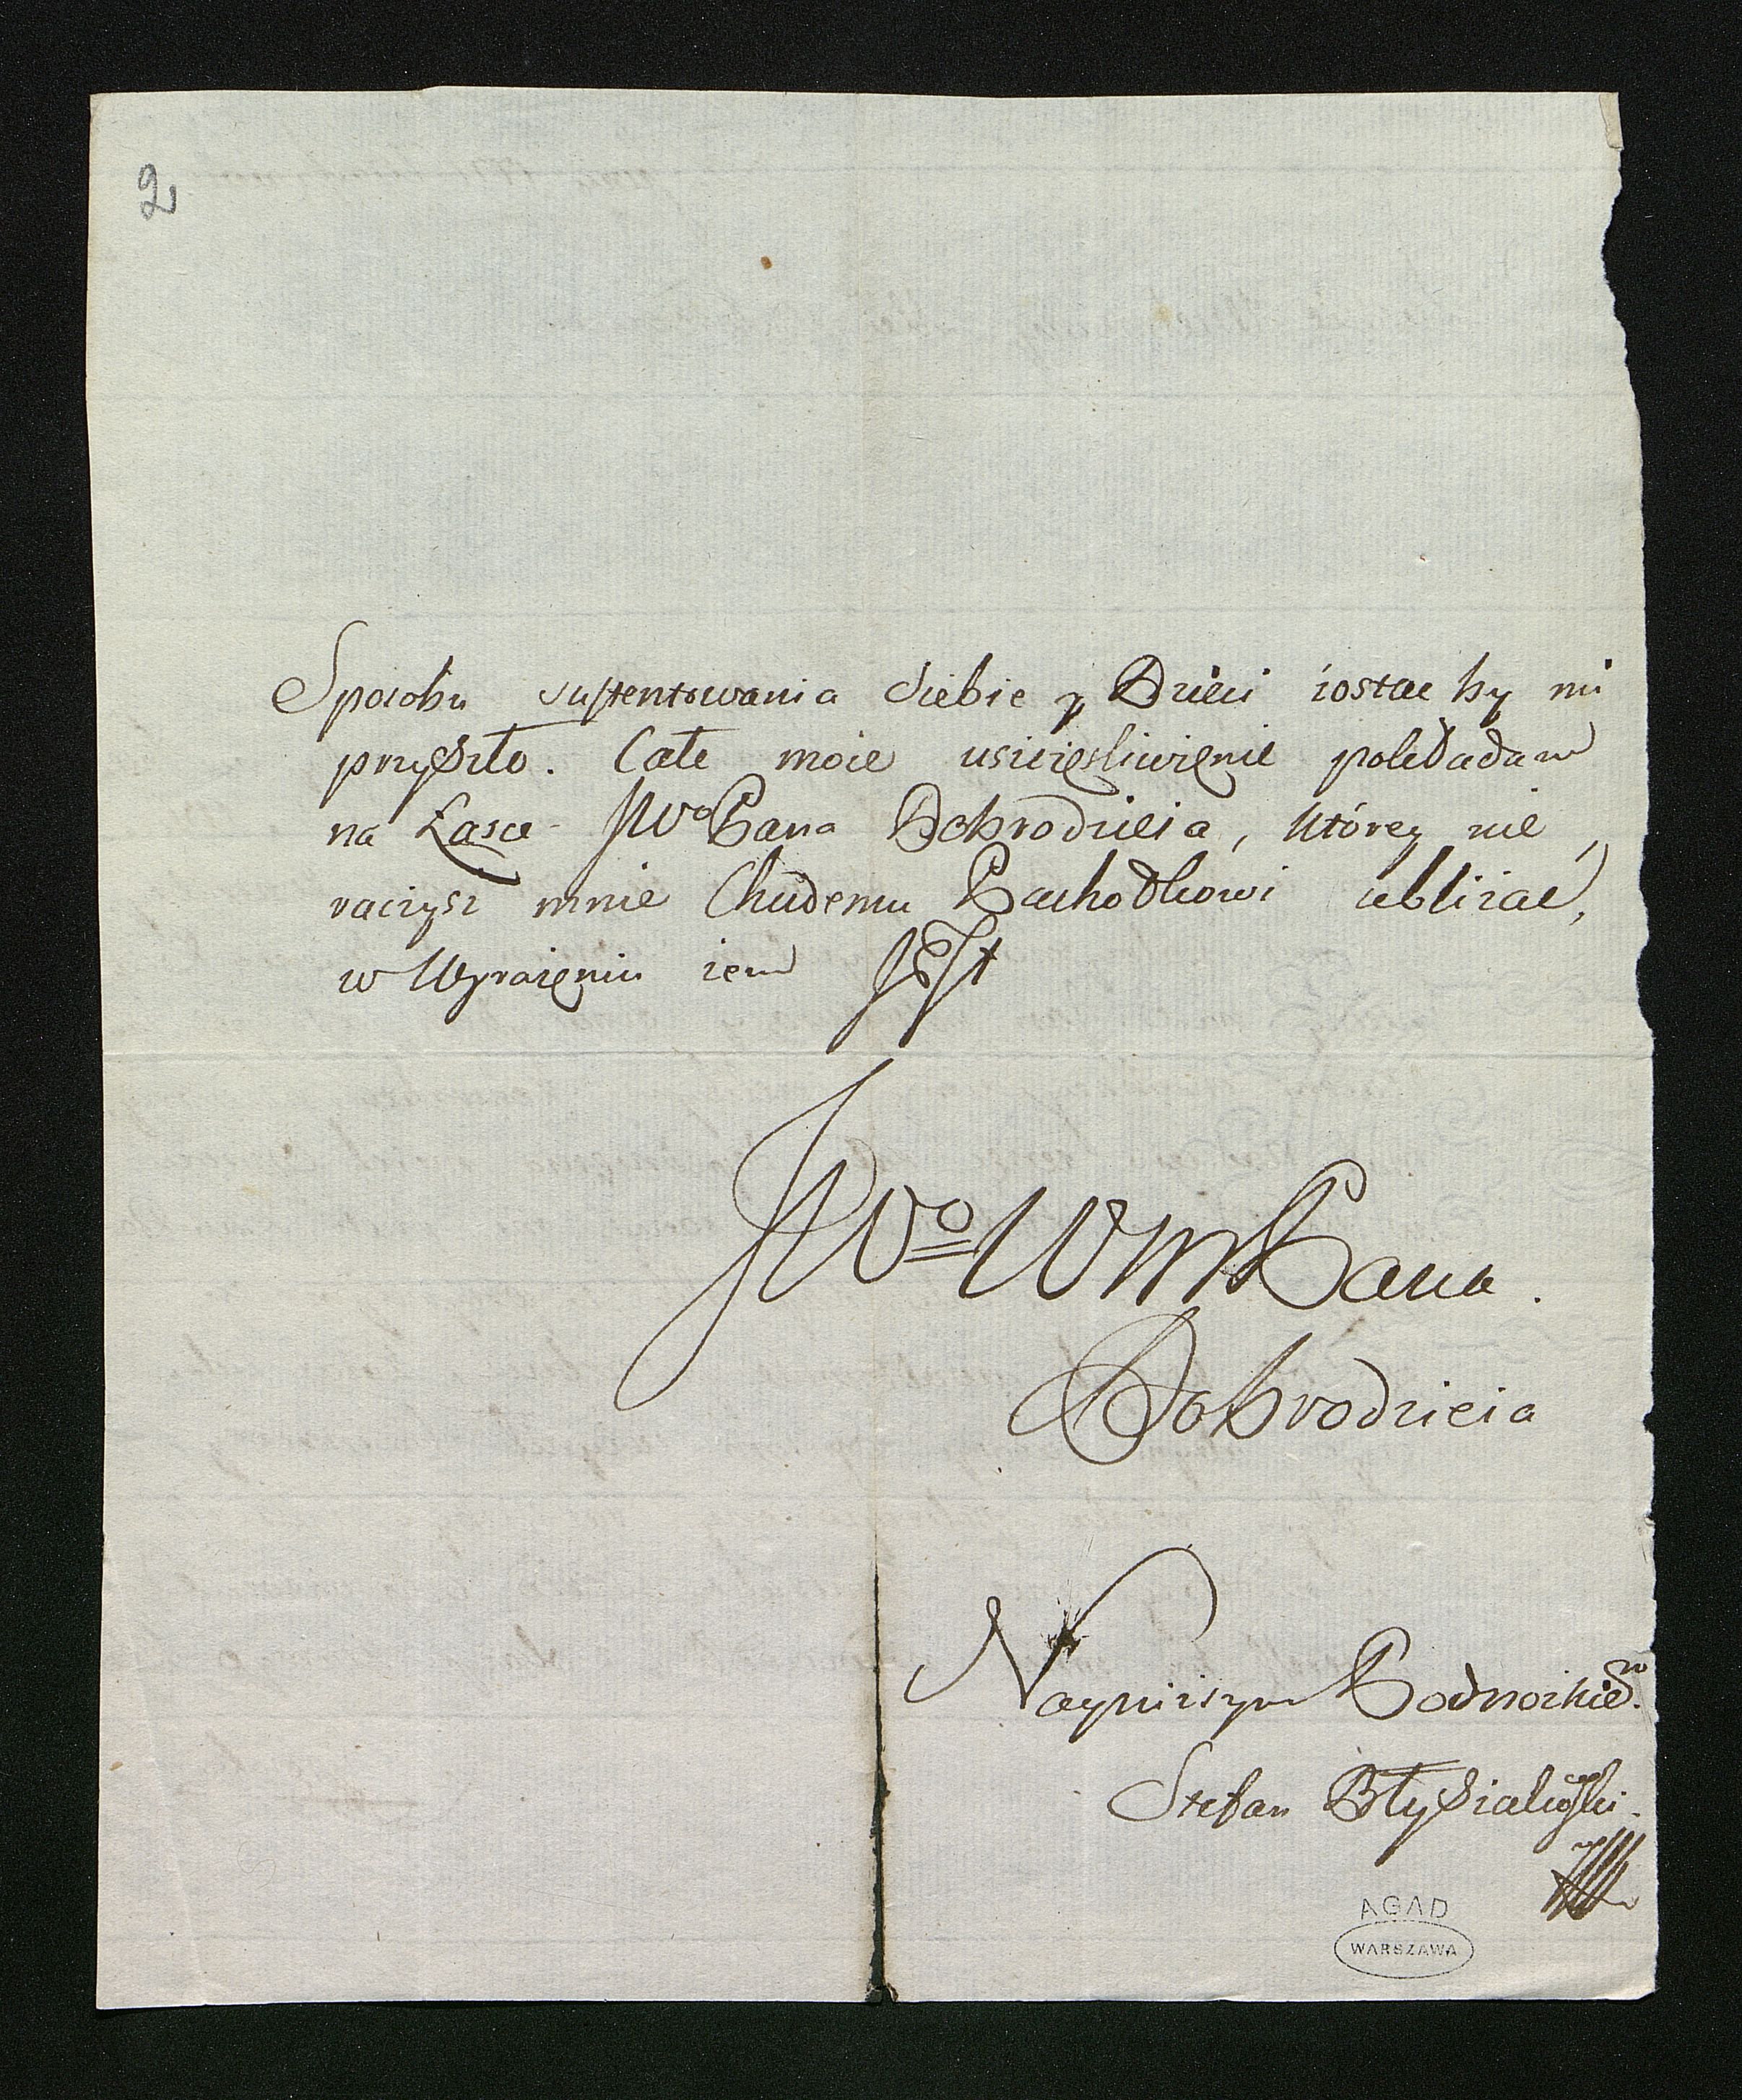 2
Sposobu sustentowania siebie y Dzieci zostać by mi
przyszło. Całe moie uszczęsliwięnie pokładam
na Łasce JWo Pana Dobrodzieia, którey nie
raczysz mnie Chudemu Pachołkowi ubliżać,
w Wyrażęniu iem Jest
JWo WM Pana.
Dobrodzieia
Nayniższym Podnóżkiem.
Stefan
AGAD
WARSZAWA